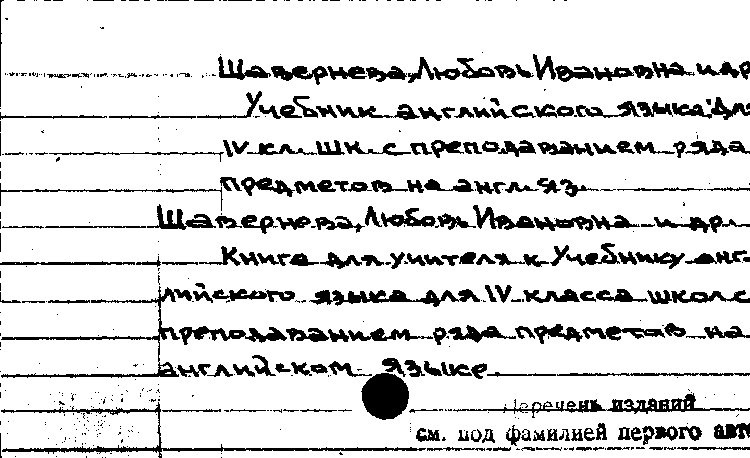 Шавернева, Любовь Ивановна и др
Учебник английского языка: Для
IV кл. шк. с преподаванием ряда
предметов на англ. яз.
Шавернева, Любовь Ивановна и др.
Книга для учителя к Учебнику анг-
лийского языка для IV класса школ с
преподаванием ряда предметов на
английском языке.
Перечень изданий
см. под фамилией первого авто